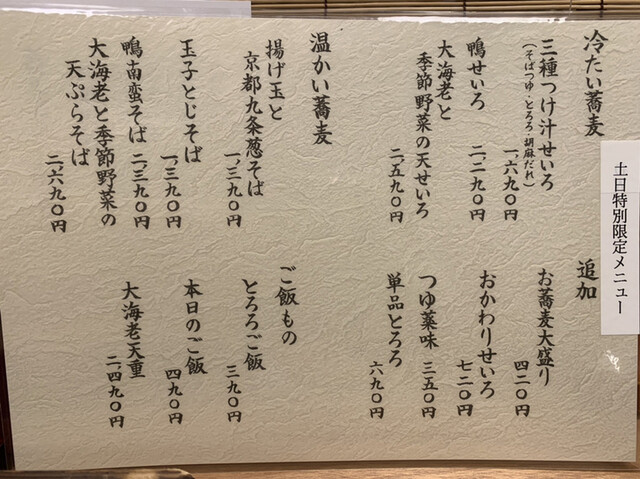 土日特別限定メニュー
冷たい蕎麦
三種つけ汁せいろ
(そばつゆ・とろろ・胡麻だれ)
一、六九〇円
鴨せいろ
二、一九〇円
大海老と
季節野菜の天せいろ
二、五九〇円
温かい蕎麦
揚げ玉と
京都九条葱そば
一、三九〇円
玉子とじそば
一、三九〇円
鴨南蛮そば
二、三九〇円
大海老と季節野菜の
天ぷらそば
二、六九〇円
追加
お蕎麦大盛り
四二〇円
おかわりせいろ
七二〇円
つゆ薬味
三五〇円
単品とろろ
六九〇円
ご飯もの
とろろご飯
三九〇円
本日のご飯
四九〇円
大海老天重
二、四九〇円